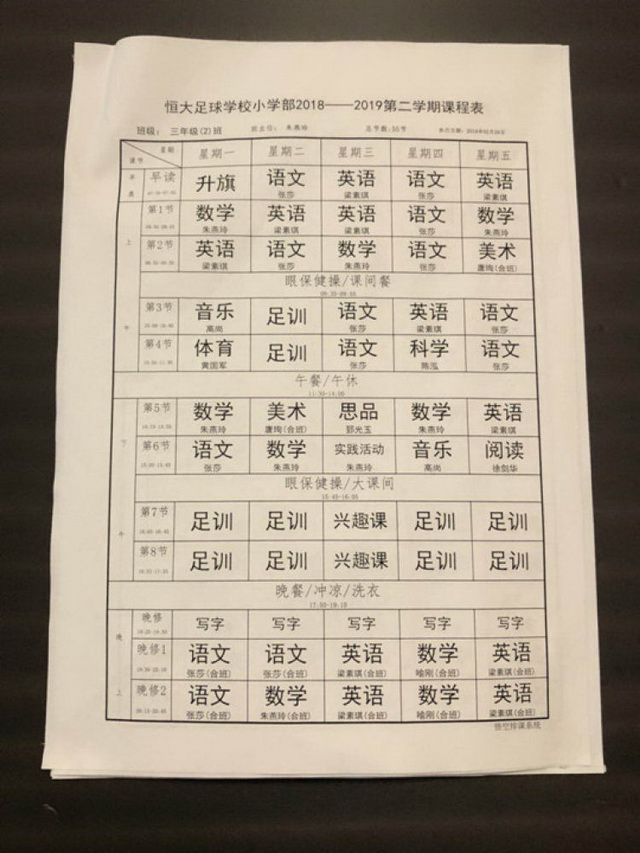 恒大足球学校小学部2018——2019第二学期课程表
班级: 三年级(2)班 班主任: 朱燕玲 总节数:55节
星期 课节 星期一 星期二 星期三 星期四 星期五
早读 升旗 语文 英语 语文 英语
张莎 梁素琪 张莎 梁素琪
上
第1节 数学 英语 英语 语文 数学
朱燕玲 梁素琪 梁素琪 张莎 朱燕玲
第2节 英语 语文 数学 语文 美术
梁素琪 张莎 朱燕玲 张莎 唐珣(合班)
眼保健操/课间餐
午
第3节 音乐 足训 语文 英语 语文
高岗 张莎 梁素琪 张莎
第4节 体育 足训 语文 科学 语文
黄国军 张莎 陈泓 张莎
午餐/午休
11:30-14:00
下
第5节 数学 美术 思品 数学 英语
朱燕玲 唐珣(合班) 郭光玉 朱燕玲 梁素琪
第6节 语文 数学 实践活动 音乐 阅读
张莎 朱燕玲 朱燕玲 高岗 徐剑华
眼保健操/大课间
15:45-16:00
午
第7节 足训 足训 兴趣课 足训 足训
第8节 足训 足训 兴趣课 足训 足训
晚餐/冲凉/洗衣
17:30-19:10
晚
晚修 写字 写字 写字 写字 写字
晚修1 语文 语文 英语 数学 英语
张莎(合班) 张莎(合班) 梁素琪(合班) 喻刚(合班) 梁素琪(合班)
上
晚修2 语文 数学 英语 数学 英语
张莎(合班) 朱燕玲(合班) 梁素琪(合班) 喻刚(合班) 梁素琪(合班)
悟空排课系统